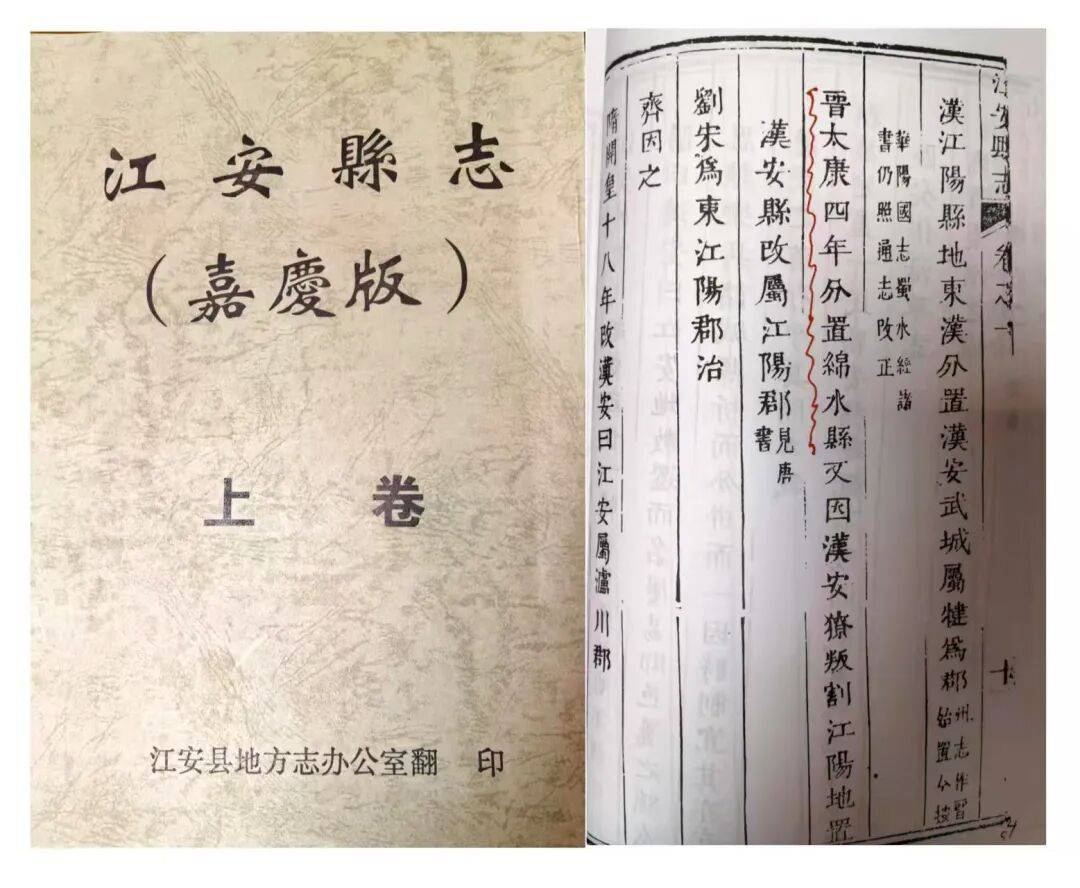 江安縣志
(嘉慶版)
上卷
江安县地方志办公室翻 印
江安縣志
卷之一
十
漢江陽縣地東漢分置漢安武城屬犍為郡州志作晉始置今按
華陽國志蜀水經諸書仍照通志改正
晉太康四年分置綿水縣又因漢安獠叛割江陽地置
漢安縣改屬江陽郡見唐書
劉宋爲東江陽郡治
齊因之
隋開皇十八年改漢安曰江安屬瀘川郡